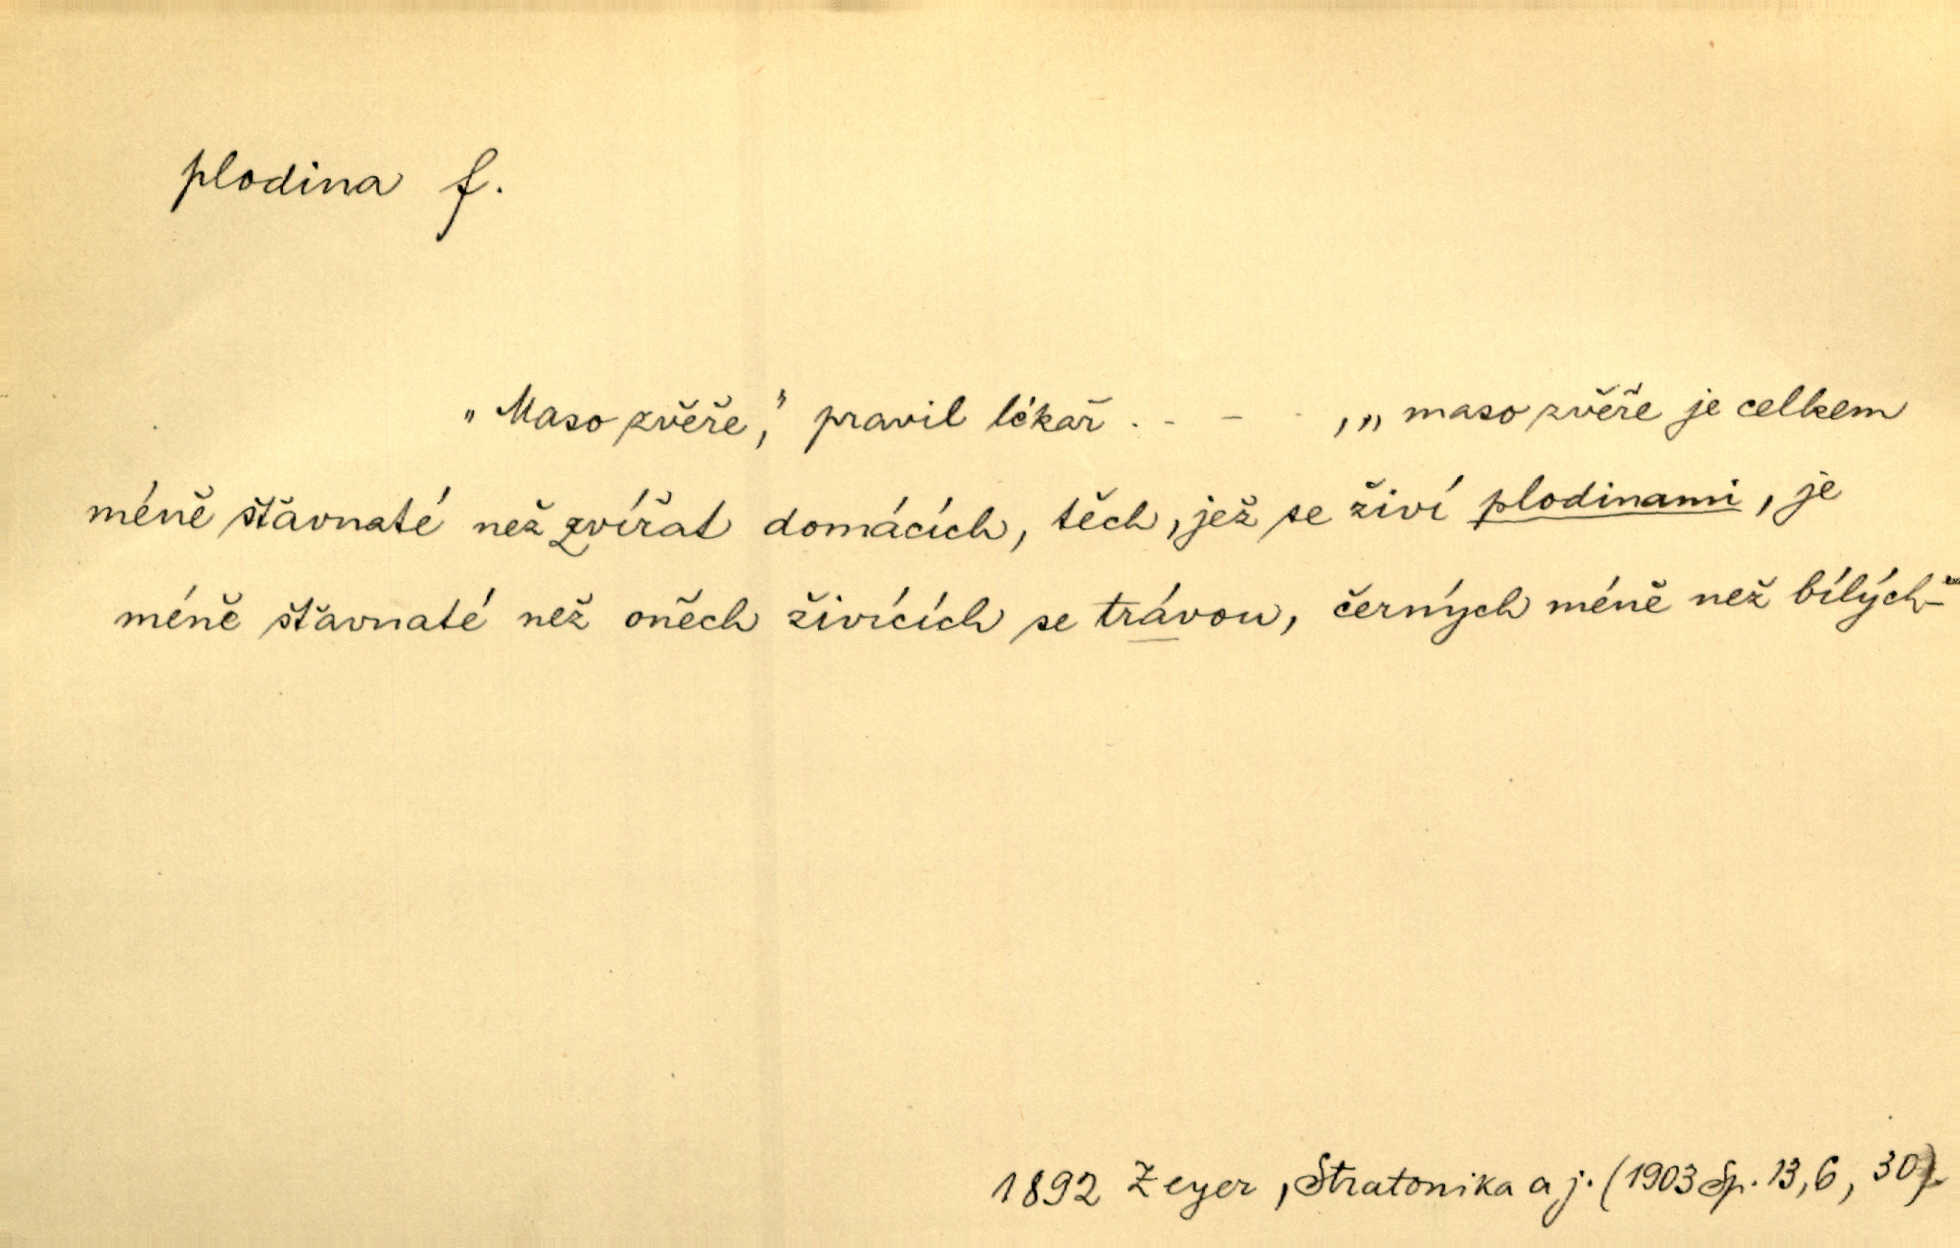 plodina f.
„Maso zvěře," pravil lékař . - - - , „maso zvěře je celkem
méně šťavnaté než zvířat domácích, těch, jež se živí plodinami, je
méně šťavnaté než oněch živících se trávou, černých méně než bílých"
1892 Zeyer, Stratonika a j. (1903 Sp. 13, 6, 30)